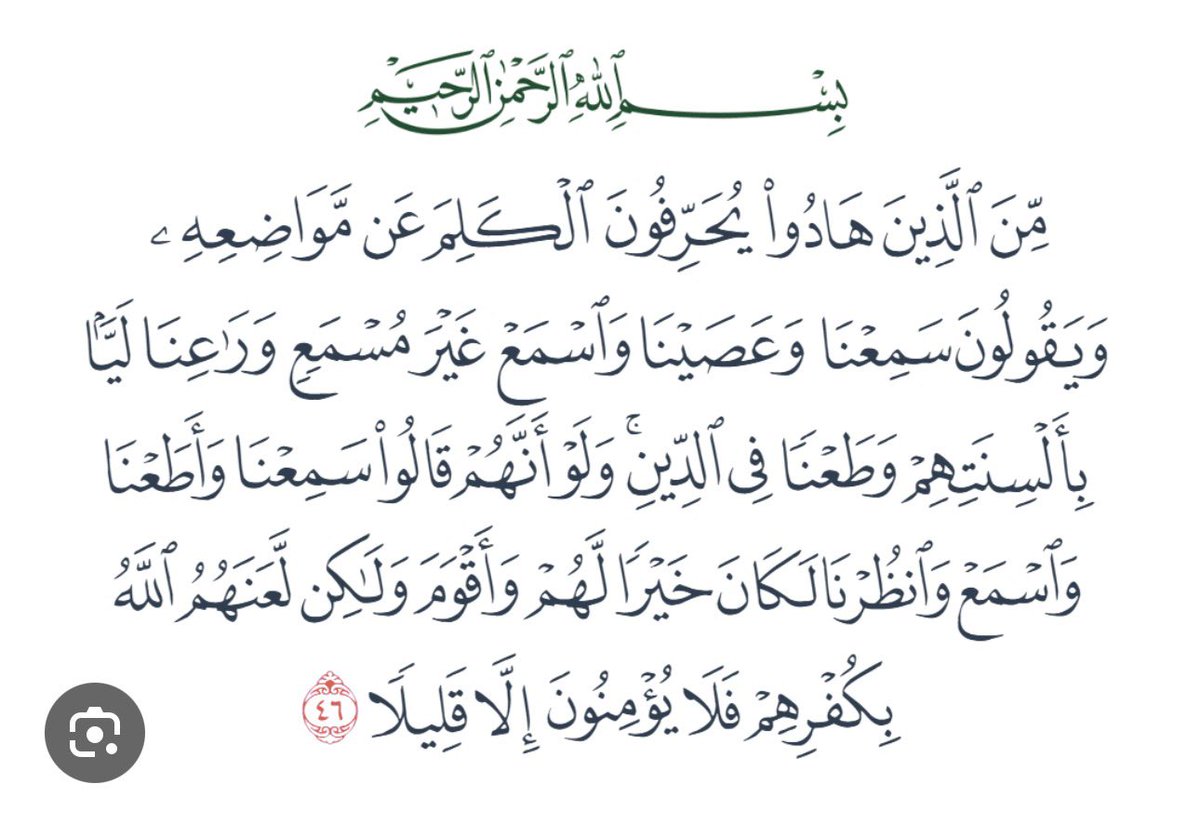 بِسْمِ ٱللَّهِ ٱلرَّحْمَٰنِ ٱلرَّحِيمِ
مِّنَ ٱلَّذِينَ هَادُوا۟ يُحَرِّفُونَ ٱلْكَلِمَ عَن مَّوَاضِعِهِۦ
وَيَقُولُونَ سَمِعْنَا وَعَصَيْنَا وَٱسْمَعْ غَيْرَ مُسْمَعٍ وَرَٰعِنَا لَيًّۢا
بِأَلْسِنَتِهِمْ وَطَعْنًا فِى ٱلدِّينِ ۚ وَلَوْ أَنَّهُمْ قَالُوا۟ سَمِعْنَا وَأَطَعْنَا
وَٱسْمَعْ وَٱنظُرْنَا لَكَانَ خَيْرًا لَّهُمْ وَأَقْوَمَ وَلَٰكِن لَّعَنَهُمُ ٱللَّهُ
بِكُفْرِهِمْ فَلَا يُؤْمِنُونَ إِلَّا قَلِيلًا ٤٦